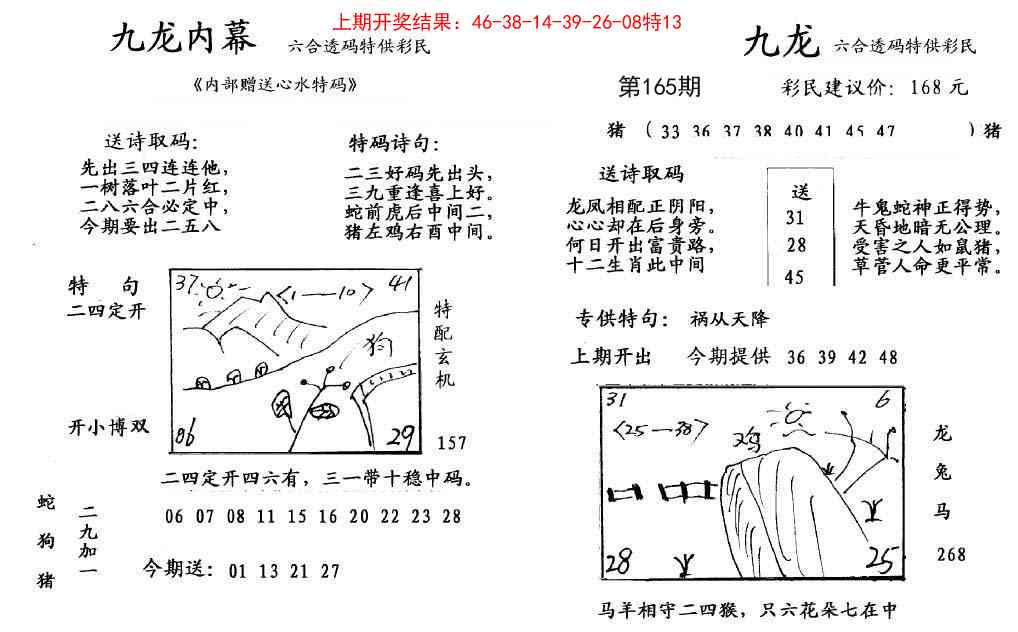 上期开奖结果：46-38-14-39-26-08特13
九龙内幕 六合透码特供彩民
《内部赠送心水特码》
送诗取码：
先出三四连连他，
一树落叶二片红，
二八六合必定中，
今期要出二五八
特码诗句：
二三好码先出头，
三九重逢喜上好。
蛇前虎后中间二，
猪左鸡右酉中间。
特 句
二四定开
开小博双
37 41
<1—10>
狗
06 29
特配玄机
157
二四定开四六有，三一带十稳中码。
蛇狗猪
二九加一
06 07 08 11 15 16 20 22 23 28
今期送：01 13 21 27
九龙 六合透码特供彩民
第165期 彩民建议价：168元
猪（33 36 37 38 40 41 45 47 ）猪
送诗取码
龙凤相配正阴阳，
心心却在后身旁。
何日开出富贵路，
十二生肖此中间
送
31
28
45
牛鬼蛇神正得势，
天昏地暗无公理。
受害之人如鼠猪，
草菅人命更平常。
专供特句： 祸从天降
上期开出 今期提供 36 39 42 48
31 6
<25—38>
鸡
28 25
龙
兔
马
268
马羊相守二四猴，只六花朵七在中